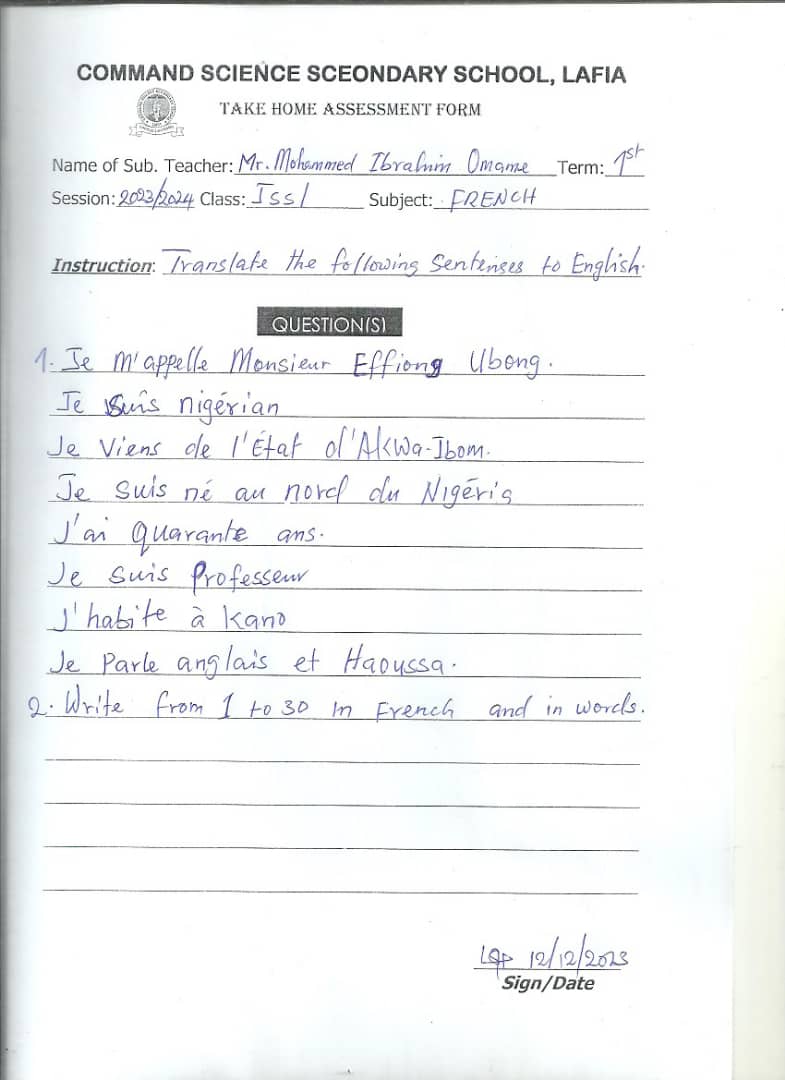 COMMAND SCIENCE SCEONDARY SCHOOL, LAFIA
TAKE HOME ASSESSMENT FORM
Name of Sub. Teacher: Mr. Mohammed Ibrahim Omame Term: 1st
Session: 2023/2024 Class: Jss1 Subject: FRENCH
Instruction: Translate the following Sentenses to English.
QUESTION(S)
1. Je m'appelle Monsieur Effiong Ubong.
Je suis nigérian
Je Viens de l'État d'Akwa-Ibom.
Je suis né au nord du Nigéria
J'ai quarante ans.
Je suis Professeur
J'habite à Kano
Je Parle anglais et Haoussa.
2. Write from 1 to 30 In French and in words.
12/12/2023
Sign/Date